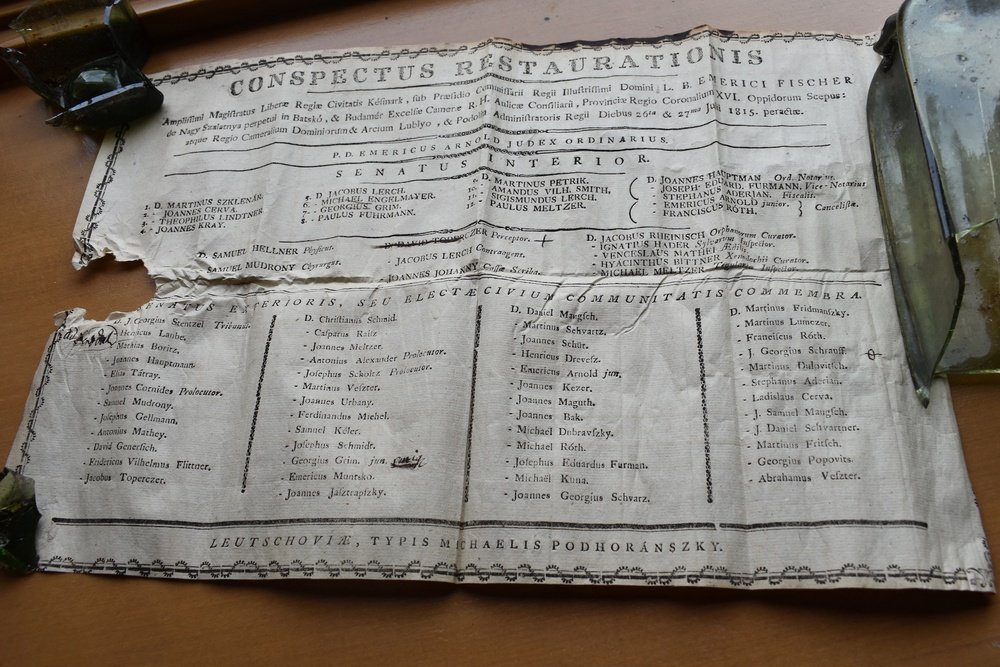 CONSPECTUS RESTAURATIONIS
Amplissimi Magistratus Liberæ Regiæ Civitatis Késmark, sub Præsidio Commissarii Regii Illustrissimi Domini L. B. EMERICI FISCHER
de Nagy Szalatnya perpetui in Batskó, & Budamér Excelsæ Cameræ R. H. Aulicæ Consiliarii, Provinciæ Regio Coronalium XVI. Oppidorum Scepus:
atque Regio Cameralium Dominiorum & Arcium Lublyo, & Podolin Administratoris Regii Diebus 26ta & 27ma Julii 1815. peractæ.
P. D. EMERICUS ARNOLD JUDEX ORDINARIUS.
SENATUS INTERIOR.
1. D. MARTINUS SZKLENÁR.
2. - JOANNES CERVA.
3. - THEOPHILUS LINDTNER
4. - JOANNES KRAY.
5. D. JACOBUS LERCH.
6. - MICHAEL ENGELMAYER.
7. - GEORGIUS GRIM.
8. - PAULUS FUHRMANN.
9. D. MARTINUS PETRIK.
10. - AMANDUS VILH. SMITH.
11. - SIGISMUNDUS LERCH.
12. - PAULUS MELTZER.
D. JOANNES HAUPTMAN Ord. Notarius.
- JOSEPH. EDUARD. FURMANN, Vice-Notarius
- STEPHANUS ADERIAN. Fiscalis.
- EMERICUS ARNOLD junior.
- FRANCISCUS RÓTH.
Cancelistæ.
D. SAMUEL HELLNER Physicus.
SAMUEL MUDRONY Chyrurgus.
D. DAVID TOPERCZER Perceptor. +
JACOBUS LERCH Contraagens.
JOANNES JOHANNY Cassæ Scriba.
D. JACOBUS RHEINISCH Orphanorum Curator.
- IGNATIUS HADER Sylvarum Inspector.
- VENCESLAUS MATHEI Ædilis.
- HYACINTHUS BITTNER Xenodochii Curator.
- MICHAEL MELTZER Inspector.
SENATUS EXTERIORIS, SEU ELECTÆ CIVIUM COMMUNITATIS COMMEMBRA.
D. J. Georgius Stentzel Tribunus.
- Henricus Laube.
- Mathias Boritz.
- Joannes Hauptmann.
- Elias Tátray.
- Joannes Cornides Prolocutor.
- Samuel Mudrony.
- Josephus Gellmann.
- Antonius Mathey.
- David Genersich.
- Fridericus Vilhelmus Flittner.
- Jacobus Toperczer.
D. Christianus Schmid.
- Casparus Raitz
- Joannes Meltzer.
- Antonius Alexander Prolocutor.
- Josephus Scholtz Prolocutor.
- Martinus Veszter.
- Joannes Urbany.
- Ferdinandus Miehel.
- Samuel Kéler.
- Josephus Schmidt.
- Georgius Grim. jun.
- Emericus Muntsko.
- Joannes Jaisztrapszky.
D. Daniel Maugsch.
- Martinus Schvartz.
- Joannes Schür.
- Henricus Drevesz.
- Emericus Arnold jun.
- Joannes Kezer.
- Joannes Maguth.
- Joannes Bak.
- Michael Dubravszky.
- Michael Róth.
- Josephus Eduardus Furman.
- Michael Kuna.
- Joannes Georgius Schvarz.
D. Martinus Fridmanszky.
- Martinus Lumczer.
- Franciscus Róth.
- J. Georgius Schrauff.
- Martinus Dulovitsch.
- Stephanus Aderian.
- Ladislaus Cerva.
- J. Samuel Maugsch.
- J. Daniel Schvartner.
- Martinus Fritsch.
- Georgius Popovits.
- Abrahamus Veszter.
LEUTSCHOVIÆ, TYPIS MICHAELIS PODHORÁNSZKY.